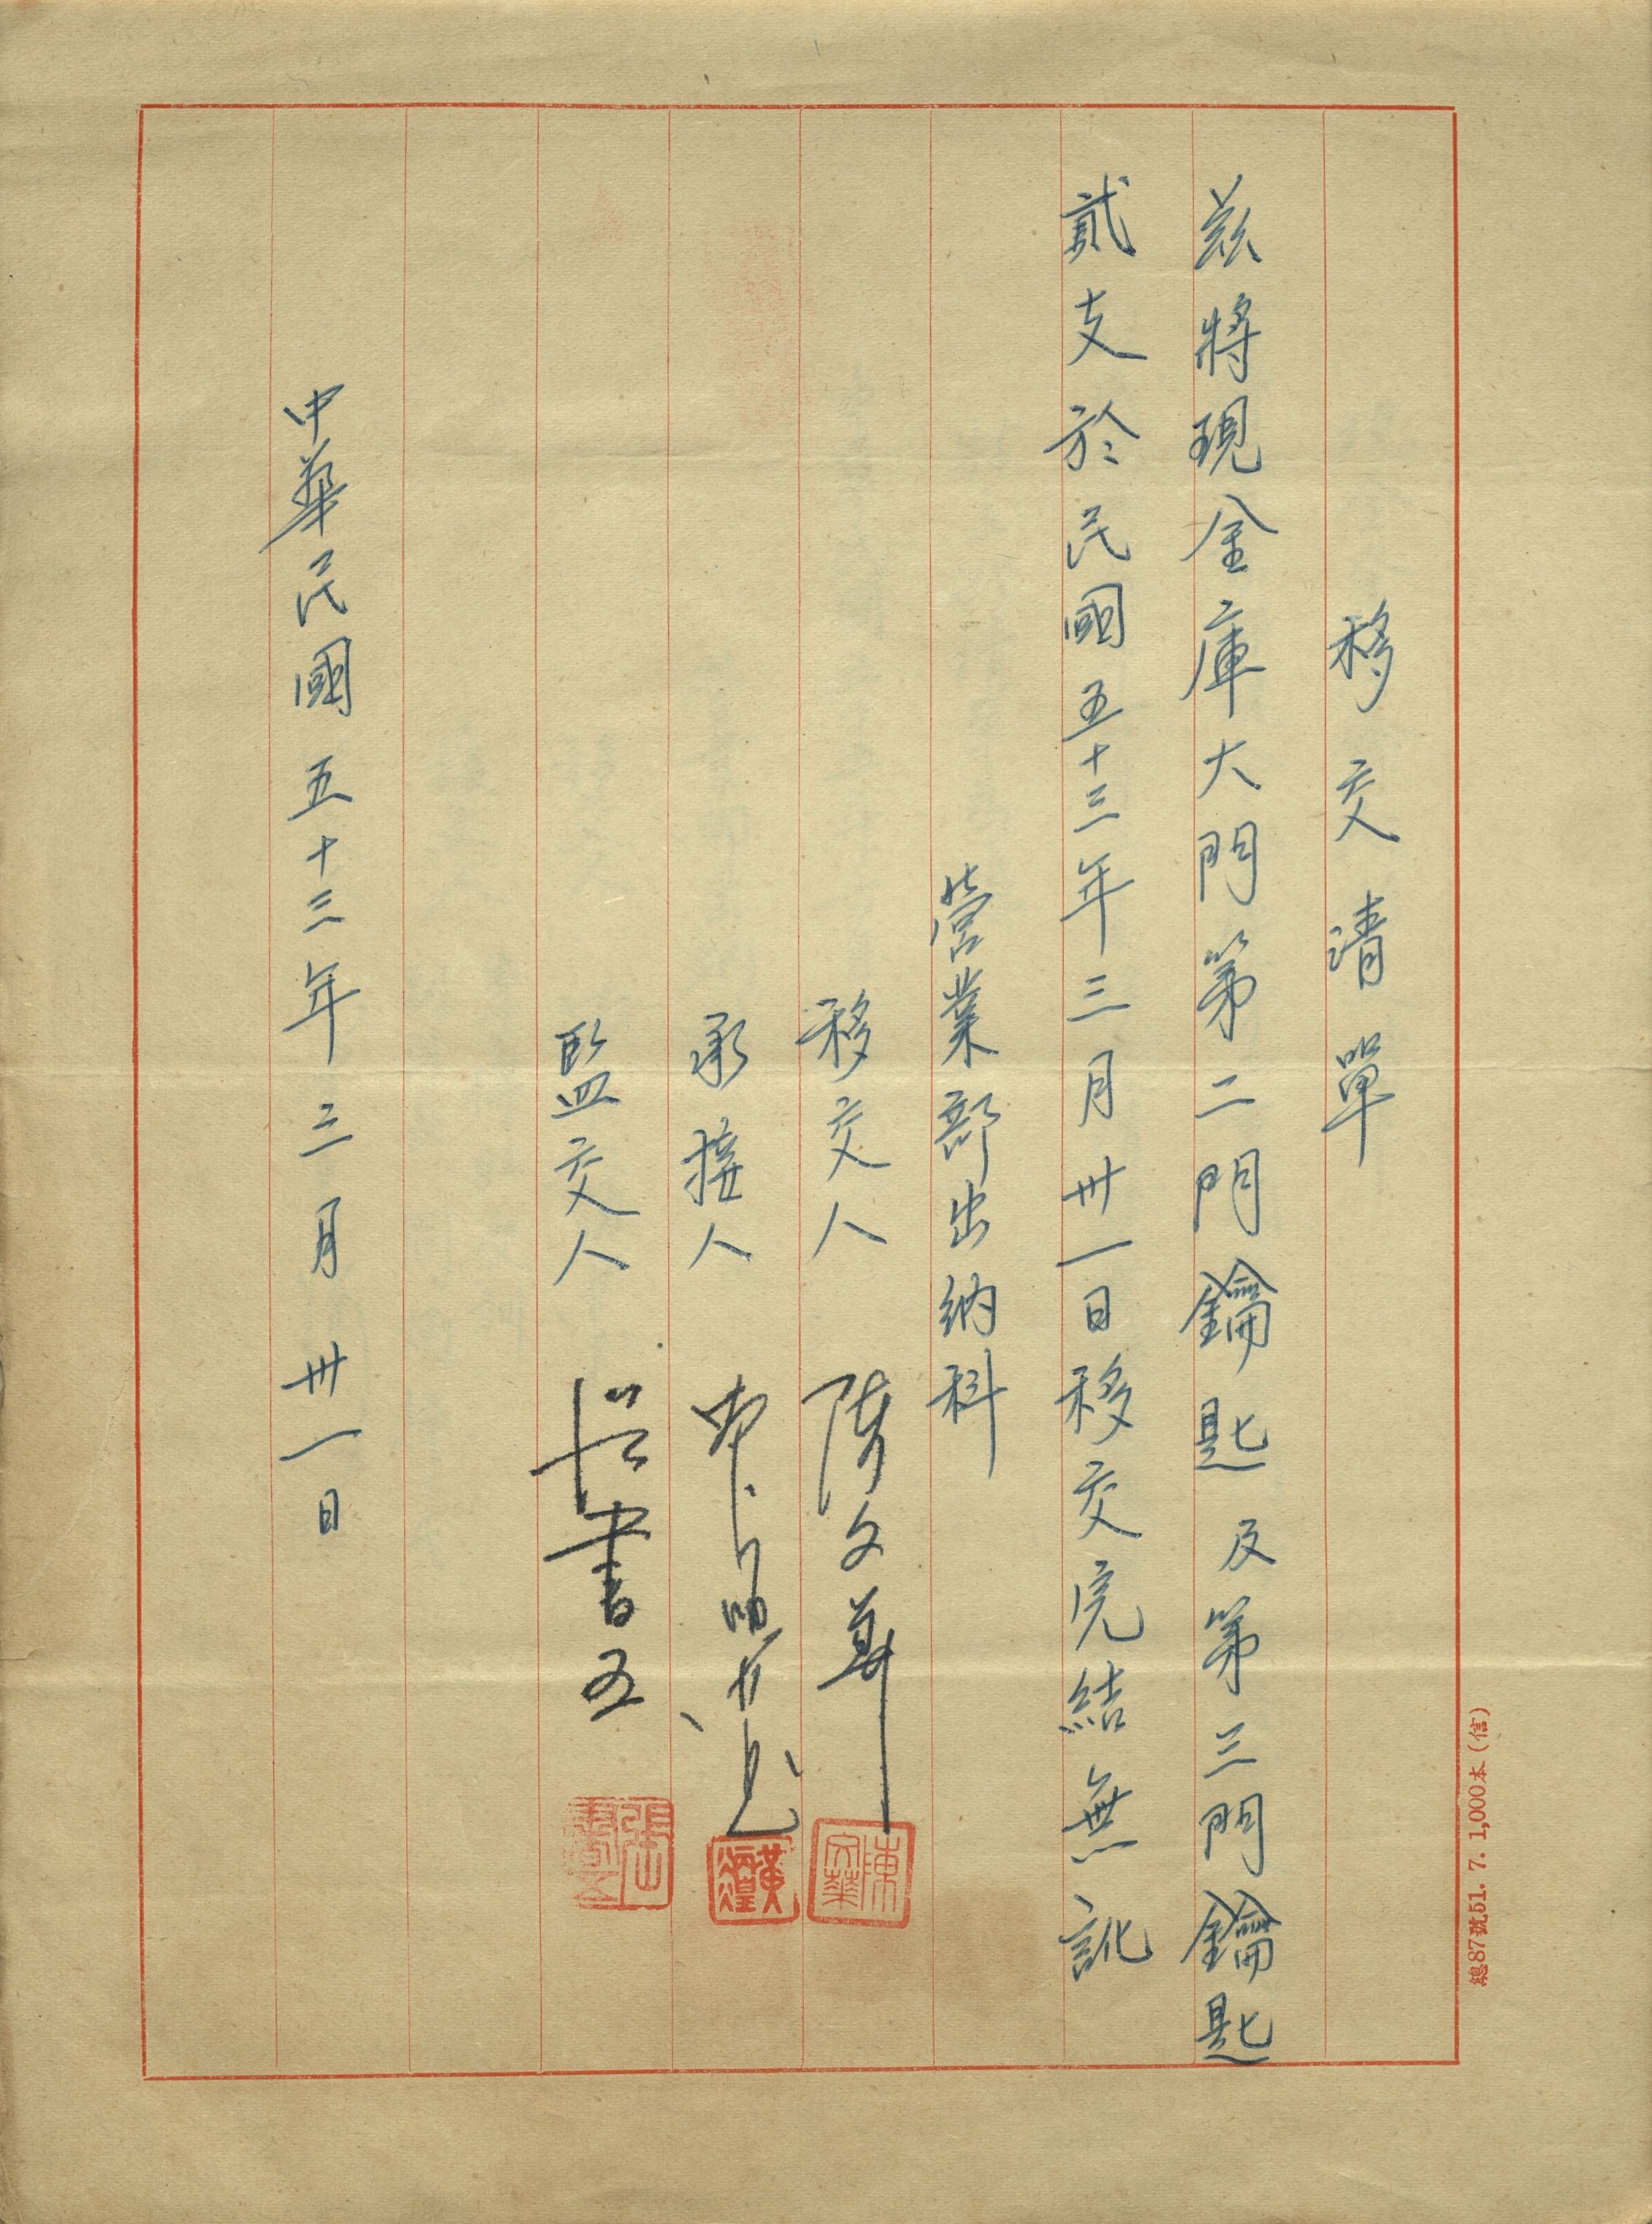 移交清單
茲將現金庫大門第二門鑰匙及第三門鑰匙
貳支於民國五十三年三月卅一日移交完結無訛
營業部出納科
移交人 陳文
承接人
監交人 張書五
中華民國五十三年三月卅一日
張書五
黃
陳
總87號51. 7. 1,000本(信)